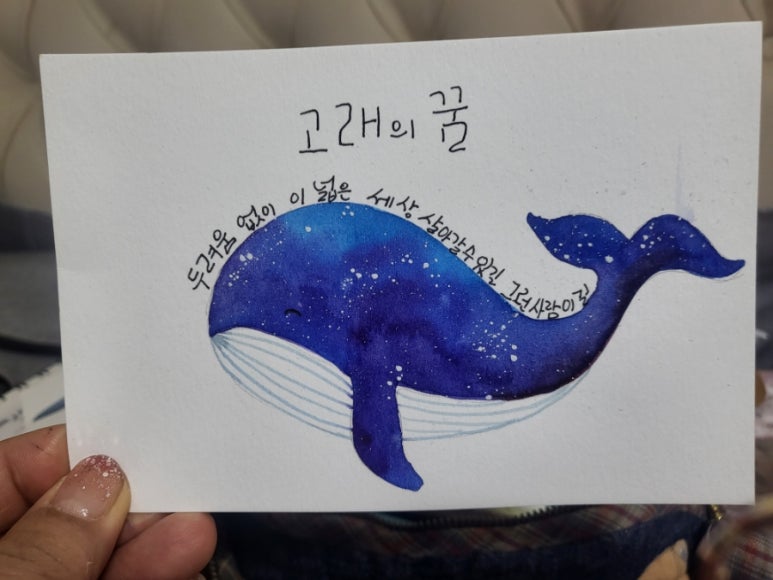 고래의 꿈
두려움 없이 이 넓은 세상 살아갈수있길 그런사람이길